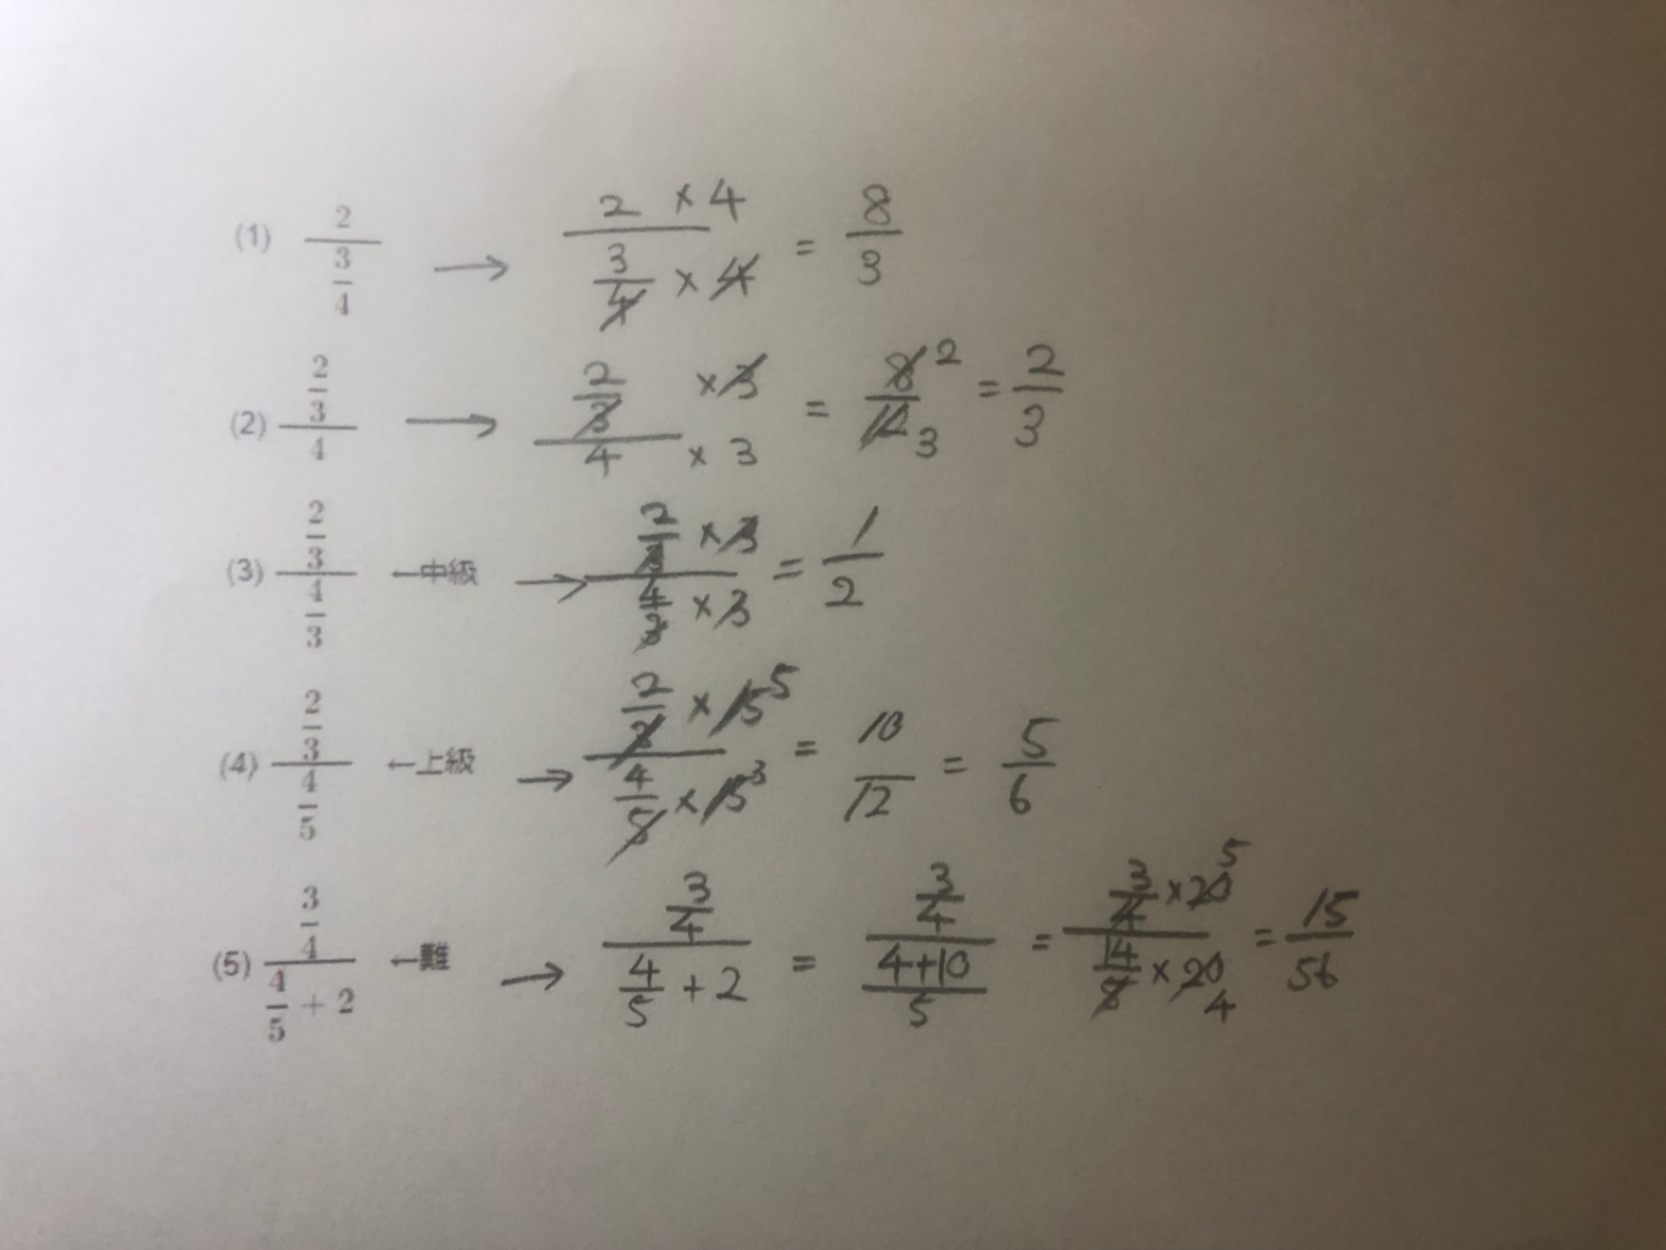 (1) \frac{2}{\frac{3}{4}} → \frac{2 × 4}{\frac{3}{4} × 4} = \frac{8}{3}
(2) \frac{\frac{2}{3}}{4} → \frac{\frac{2}{3} × 3}{4 × 3} = \frac{8 2}{12 3} = \frac{2}{3}
(3) \frac{\frac{2}{3}}{\frac{4}{3}} ←中級 → \frac{\frac{2}{3} × 3}{\frac{4}{3} × 3} = \frac{1}{2}
(4) \frac{\frac{2}{3}}{\frac{4}{5}} ←上級 → \frac{\frac{2}{3} × 15 5}{\frac{4}{5} × 15 3} = \frac{10}{12} = \frac{5}{6}
(5) \frac{\frac{3}{4}}{\frac{4}{5} + 2} ←難 → \frac{\frac{3}{4}}{\frac{4}{5} + 2} = \frac{\frac{3}{4}}{\frac{4+10}{5}} = \frac{\frac{3}{4} × 20 5}{\frac{14}{5} × 20 4} = \frac{15}{56}